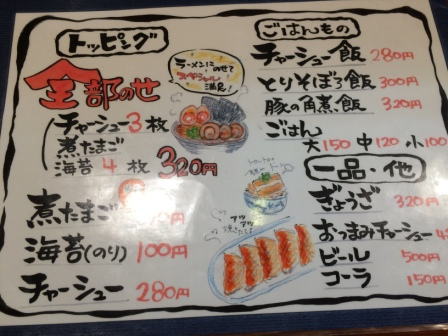 トッピング
全部のせ
チャーシュー3枚
煮たまご
海苔4枚 320円
煮たまご 円
海苔(のり) 100円
チャーシュー 280円
ラーメンにのせて
スペシャル
満足!
ごはんもの
チャーシュー飯 280円
とりそぼろ飯 300円
豚の角煮飯 320円
ごはん
大150 中120 小100
一品・他
ぎょうざ 320円
おつまみチャーシュー
ビール 500円
コーラ 150円
アツアツ